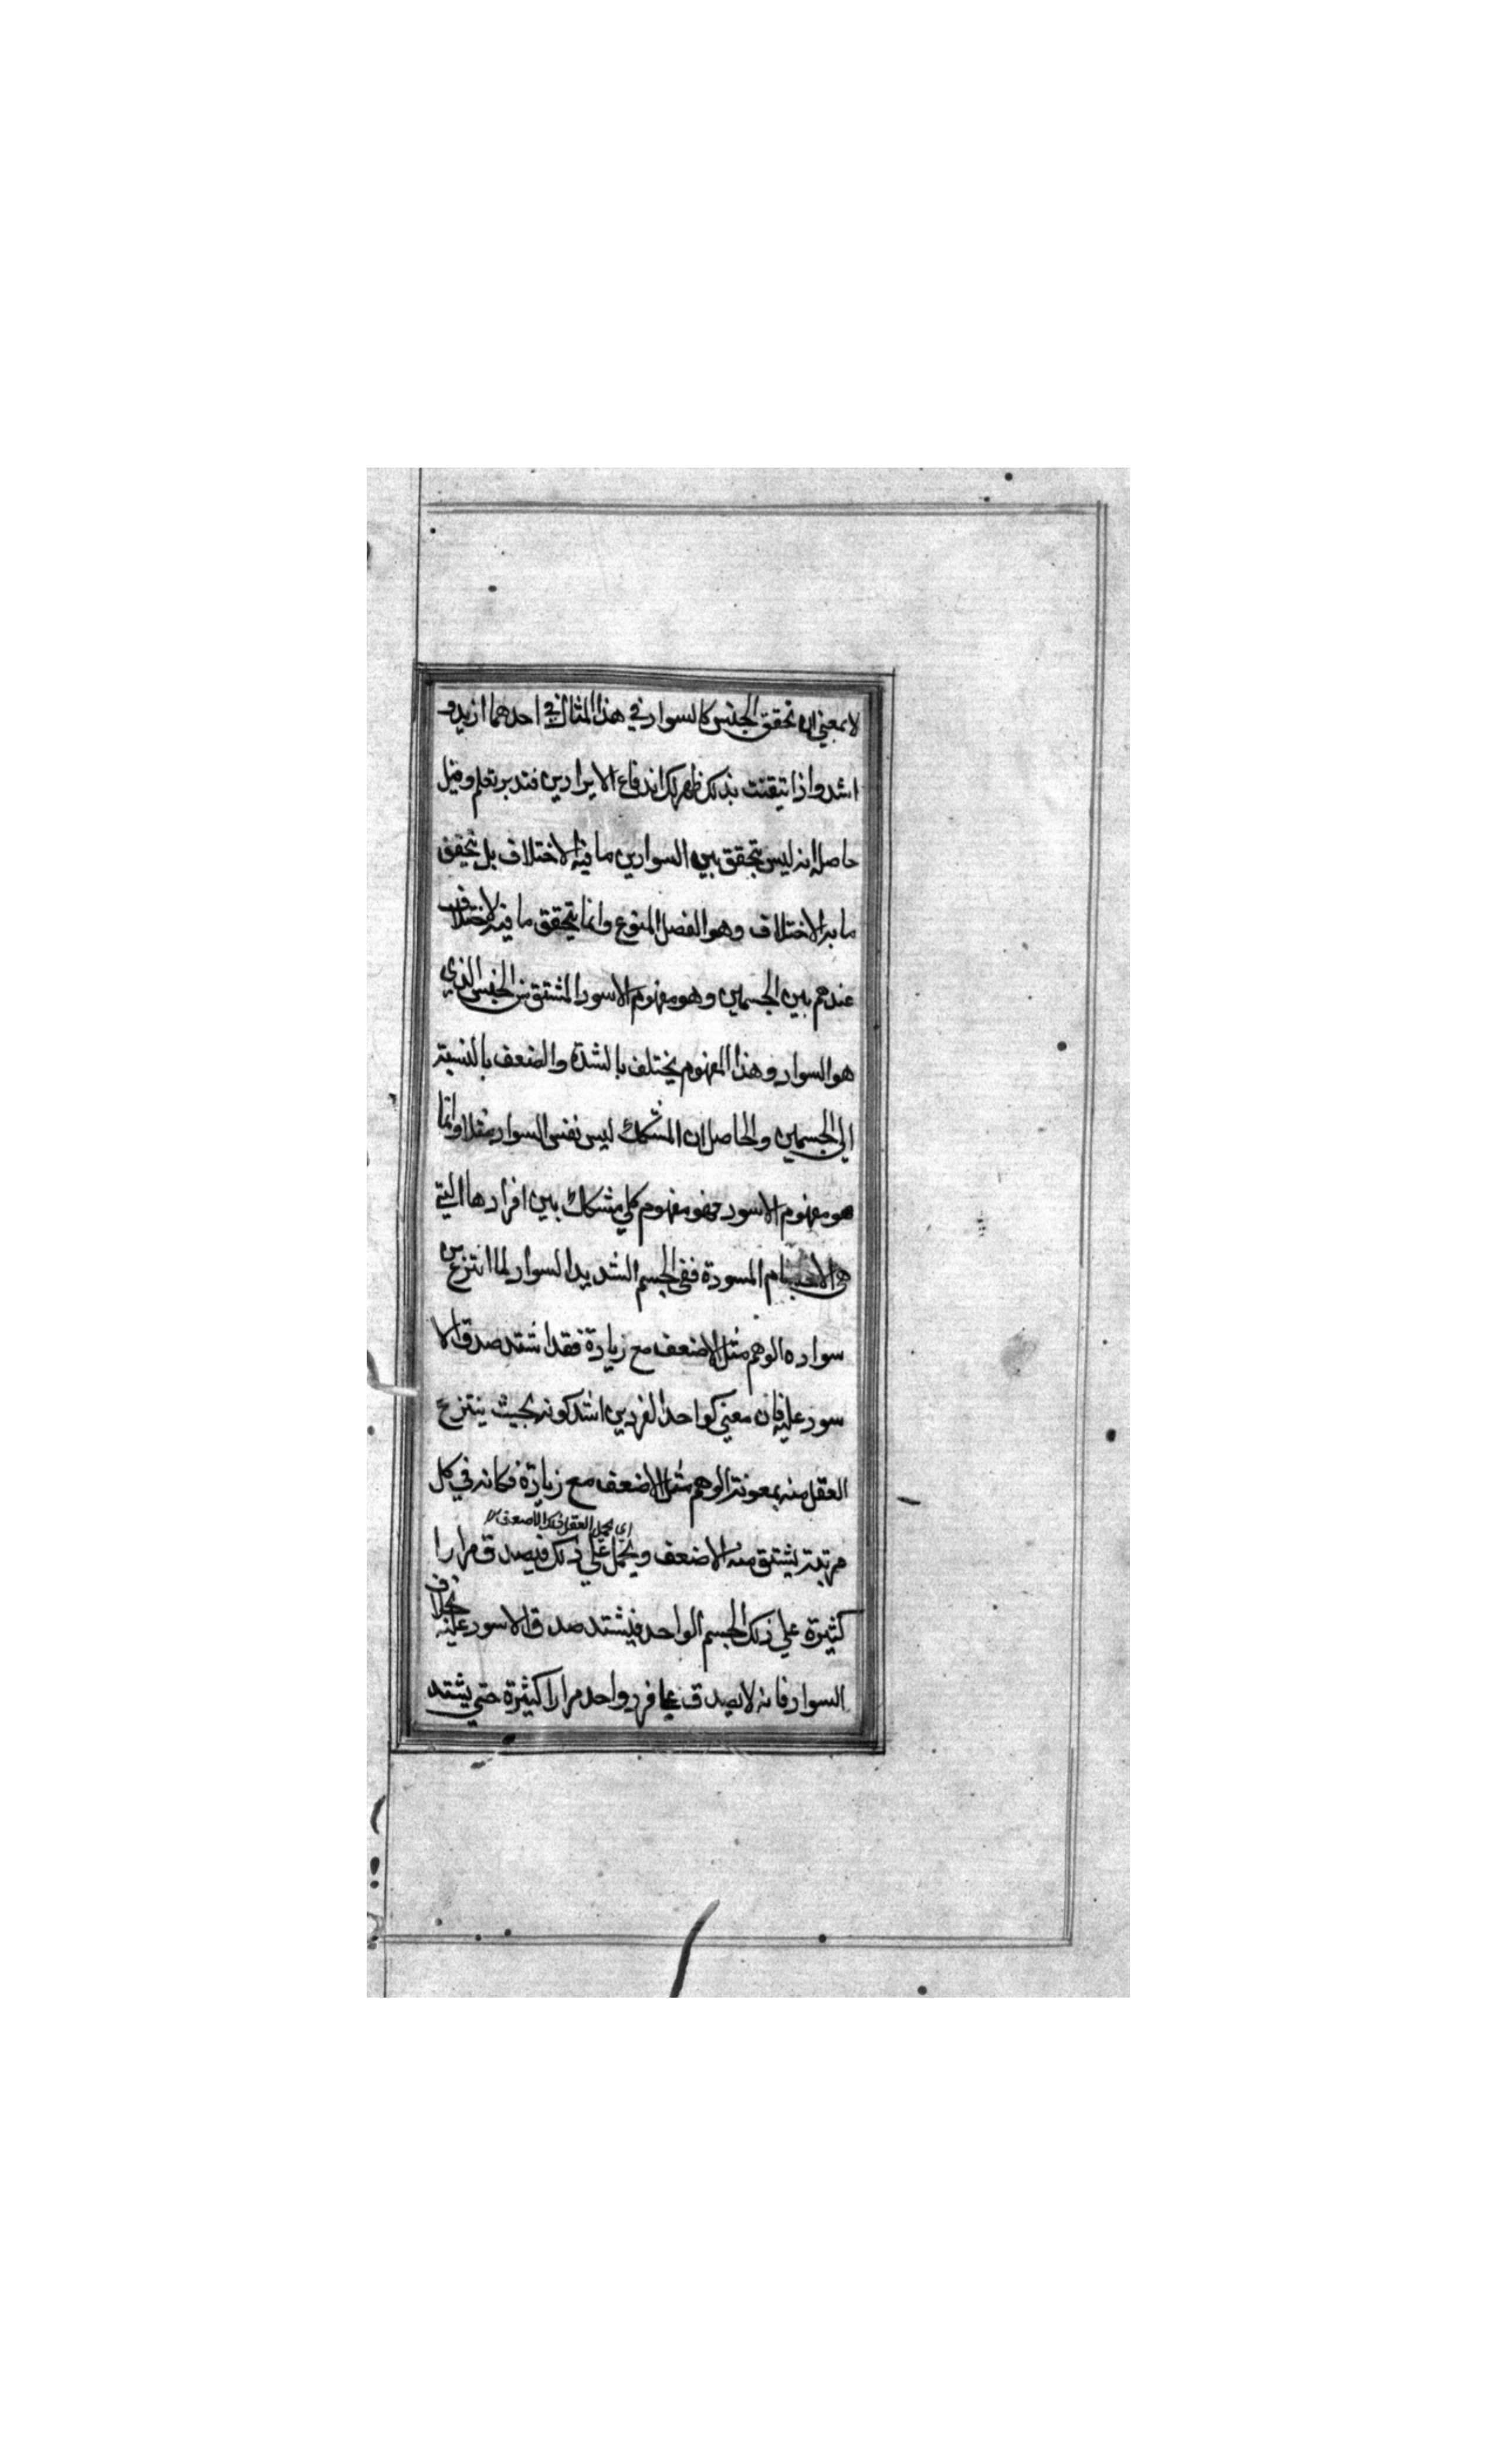 لا بمعني ان تحقق الجنس كالسواد في هذا المثال في احدهما ازيد و
اشد واذا تيقنت بذلك ظهر لك اندفاع الايرادين فتدبر تعلم وقيل
حاصله انه ليس يتحقق بين السوادين ما فيه الاختلاف بل يتحقق
ما به الاختلاف وهو الفصل المنوع وانما يتحقق ما فيه الاختلاف
عندهم بين الجسمين وهو مفهوم الاسود المشتق من الجنس الذي
هو السواد وهذا المفهوم يختلف بالشدة والضعف بالنسبة
الي الجسمين والحاصل ان المشكك ليس نفس السواد مثلا وانما
هو مفهوم الاسود فهو مفهوم كلي مشكك بين افرادها التي
هي الاجسام المسودة ففي الجسم الشديد السواد لما انتزع من
سواده الوهم مثل الاضعف مع زيادة فقد اشتد صدق الا
سود عليه فان معني كو احد الفردين اشد كونه بحيث ينتزع
العقل منه بمعونة الوهم مثل الاضعف مع زيادة فكانه في كل
اي يحمل العقل ذلك الاضعف
مرتبة يشتق منه الاضعف ويحمل علي ذلك فيصدق مرارا
كثيرة علي ذلك الجسم الواحد فيشتد صدق الاسود عليه بخلاف
السواد فانه لا يصدق علي فرد واحد مرارا كثيرة حتي يشتد